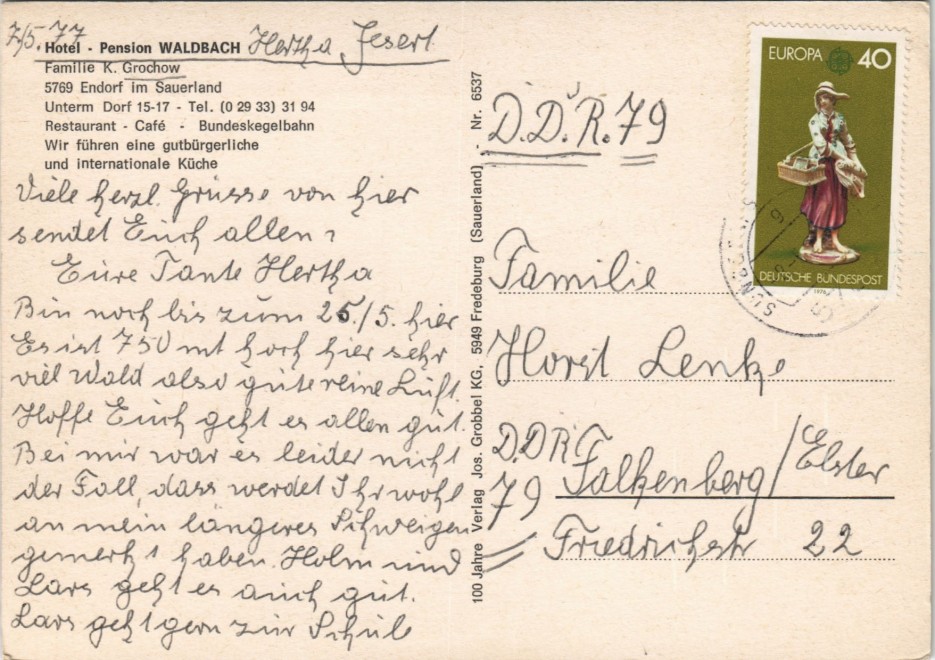 7/5. 77
Hotel - Pension WALDBACH Hertha Jesert
Familie K. Grochow
5769 Endorf im Sauerland
Unterm Dorf 15-17 - Tel. (0 29 33) 31 94
Restaurant - Café - Bundeskegelbahn
Wir führen eine gutbürgerliche
und internationale Küche
Viele herzl. Grüsse von hier
sendet Euch allen
Eure Tante Hertha
Bin noch bis zum 25./5. hier
Es ist 750 mt hoch hier sehr
viel Wald also gute reine Luft.
Hoffe Euch geht es allen gut.
Bei mir war es leider nicht
der Fall, dass werdet Ihr wohl
an mein längeres Schweigen
gemerkt haben. Holm und
Lars geht es auch gut.
Lars geht gern zur Schule
100 Jahre Verlag Jos. Grobbel KG, 5949 Fredeburg (Sauerland) - Nr. 6537
EUROPA 40
DEUTSCHE BUNDESPOST
D.D.R. 79
Familie
Horst Lenke
DDR
79 Falkenberg/Elster
Friedrichstr 22